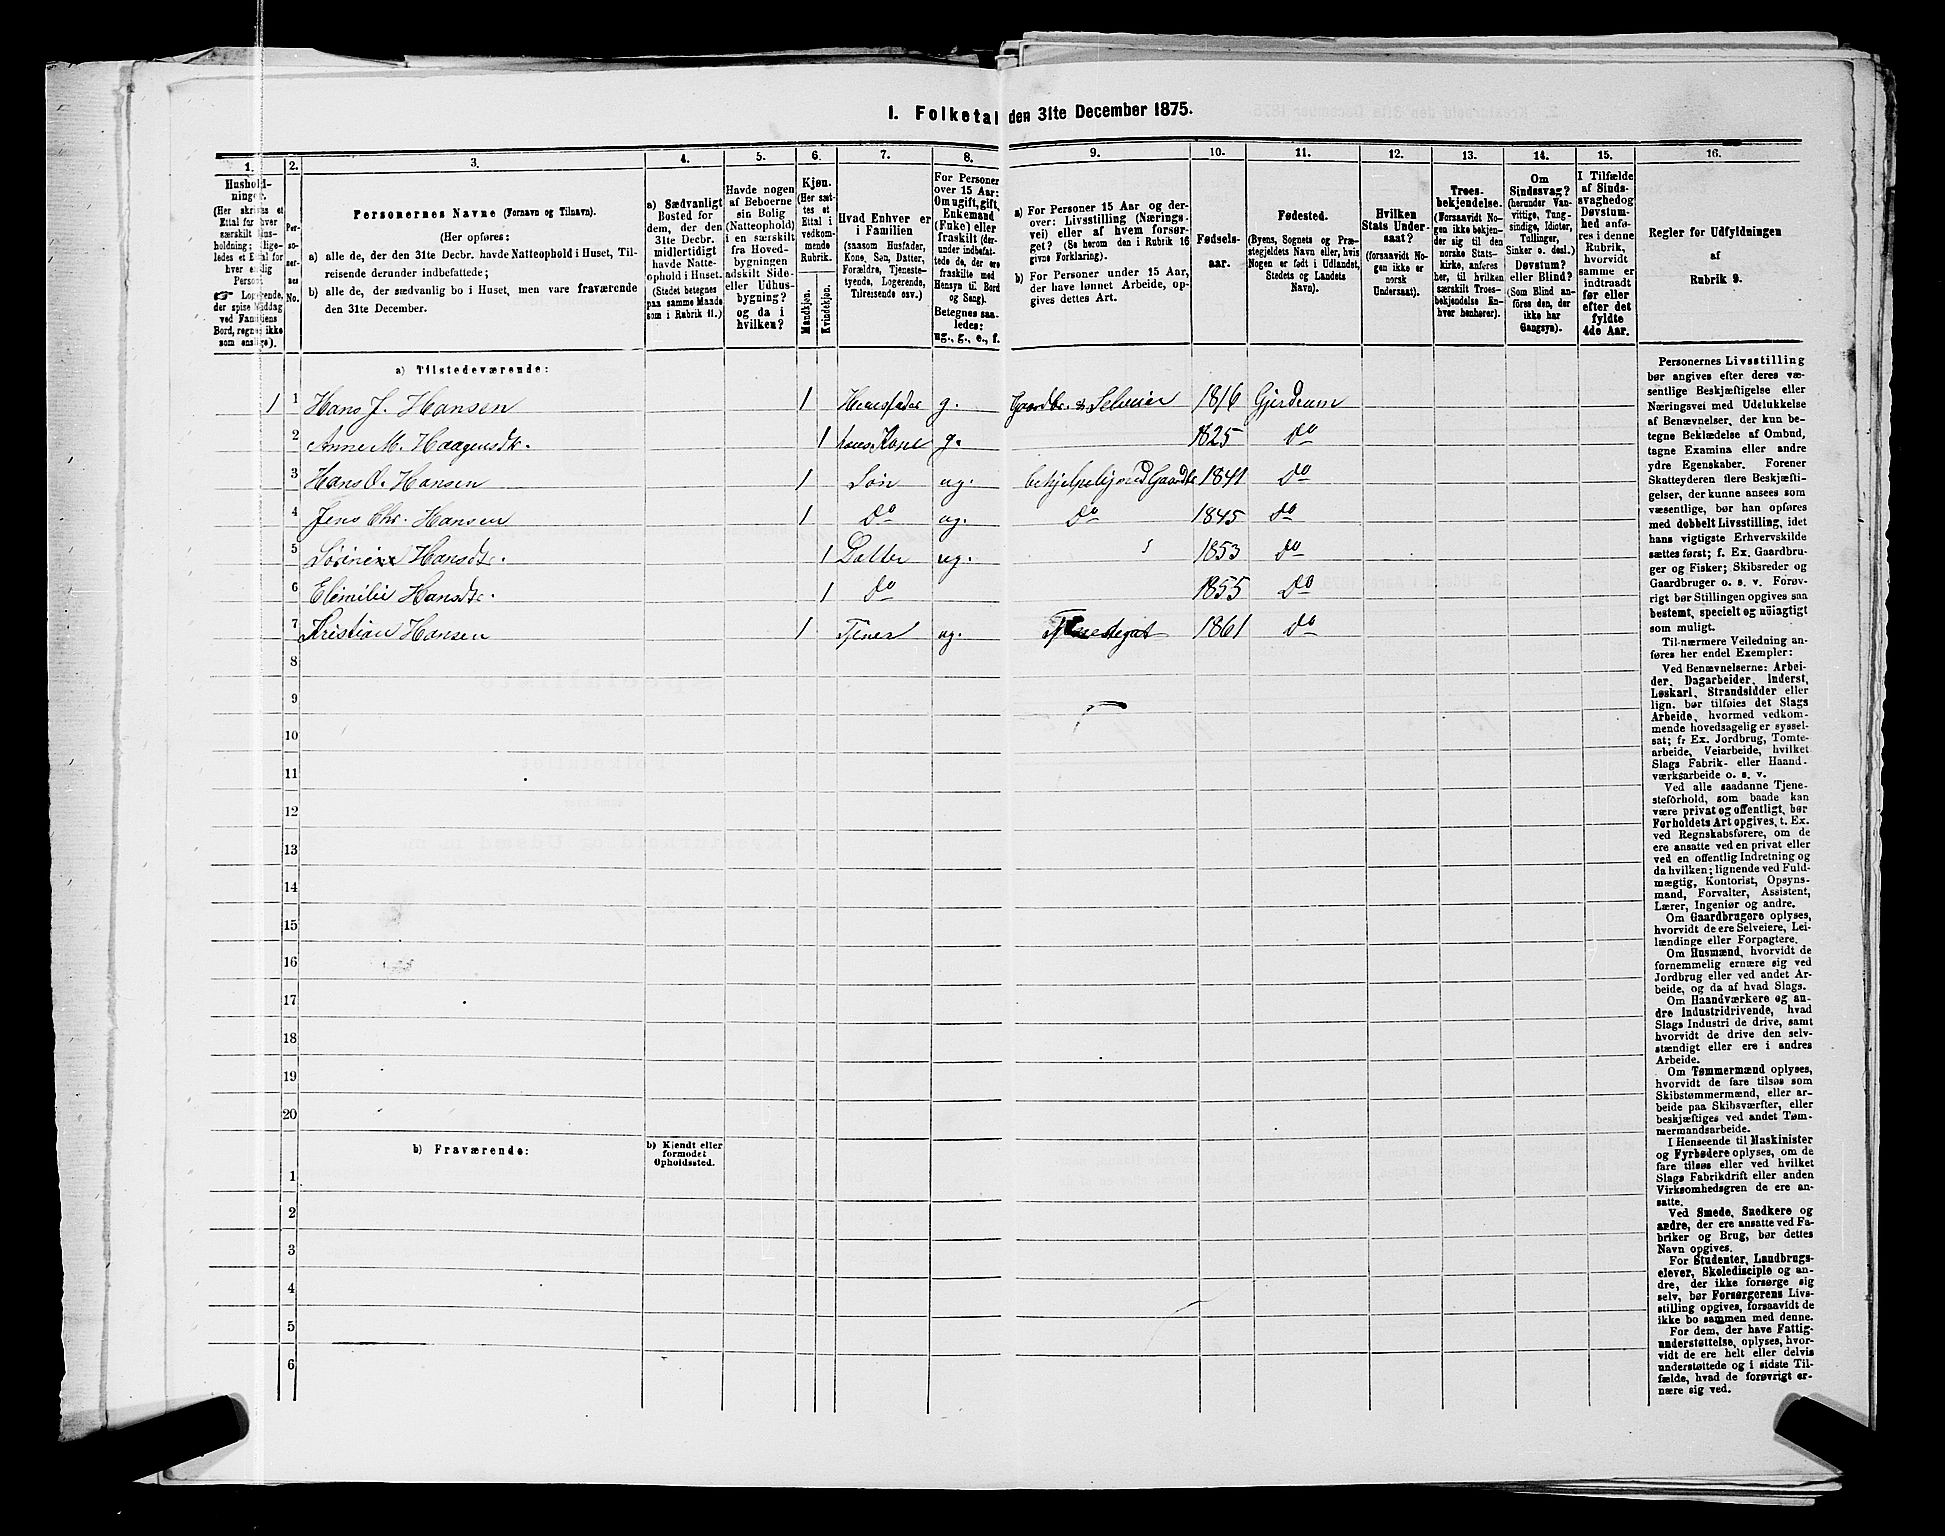 1. Folketal den 31te December 1875.
1. 2. 3. 4. 5. 6. 7. 8. 9. 10. 11. 12. 13. 14. 15. 16.
Hushold-
ninger.
(Her skrives et
Ettal for hver
særskilt Hus-
holdning; lige-
ledes et Ettal for
hver enslig
Person.
☞ Logerende,
der spise Middag
ved Familiens
Bord, regnes ikke
som enslige).
Per-
so-
ner-
nes
No.
Personernes Navne (Fornavn og Tilnavn).
(Her opføres:
a) alle de, der den 31te Decbr. havde Natteophold i Huset, Til-
reisende derunder indbefattede;
b) alle de, der sædvanlig bo i Huset, men vare fraværende
den 31te December.
a) Sædvanligt
Bosted for
dem, der den
31te Decbr.
midlertidigt
havde Natte-
ophold i Huset.
(Stedet betegnes
paa samme Maade
som i Rubrik 11.)
Havde nogen
af Beboerne
sin Bolig
(Natteophold)
i en særskilt
fra Hoved-
bygningen
adskilt Side-
eller Udhus-
bygning?
og da i
hvilken?
Kjøn.
(Her sæt-
tes et
Ettal i
vedkom-
mende
Rubrik.
Mandkjøn.
Kvindekjøn.
Hvad Enhver er
i Familien
(saasom Husfader,
Kone, Søn, Datter,
Forældre, Tjeneste-
tyende, Logerende,
Tilreisende osv.)
For Personer
over 15 Aar:
Om ugift, gift,
Enkemand
(Enke) eller
fraskilt (der-
under indbefat-
tede de, der ere
fraskilte med
Hensyn til Bord
og Seng).
Betegnes saa-
ledes:
ug., g., e., f.
a) For Personer 15 Aar og der-
over: Livsstilling (Nærings-
vei) eller af hvem forsør-
get? (Se herom den i Rubrik 16
givne Forklaring).
b) For Personer under 15 Aar,
der have lønnet Arbeide, op-
gives dettes Art.
Fødsels-
aar.
Fødested.
(Byens, Sognets og Præ-
stegjeldets Navn eller, hvis
Nogen er født i Udlandet,
Stedets og Landets
Navn).
Hvilken
Stats Under-
saat?
(forsaavidt No-
gen ikke er
norsk
Undersaat).
Troes-
bekjendelse.
(Forsaavidt No-
gen ikke bekjen-
der sig til den
norske Stats-
kirke, anføres
her, til hvilken
særskilt Troes-
bekjendelse En-
hver henhører).
Om
Sindssvag?
(herunder Van-
vittige, Tung-
sindige, Idioter,
Tullinger,
Sinker o. desl.)
Døvstum?
eller Blind?
(Som Blind an-
føres den, der
ikke har
Gangsyn).
I Tilfælde
af Sinds-
svaghed og
Døvstum-
hed anfø-
res i denne
Rubrik,
hvorvidt
samme er
indtraadt
før eller
efter det
fyldte
4de Aar.
Regler for Udfyldningen
af
Rubrik 9.
a) Tilstedeværende:
1 1 Hans J. Hansen 1 Huusfader g. Gaardbr. & Selveier 1816 Gjerdrum
2 Anne M. Haagensdt. 1 hans Kone g. 1825 do
3 Hans O. Hansen 1 Søn ug. behjelpelig med Gaardbr 1841 Do
4 Jens Chr. Hansen 1 Do ug. Do 1845 do
5 Sørine Hansdtr. 1 Datter ug. 1853 do
6 Elemilie Hansdtr. 1 do 1855 Do
7 Kristian Hansen 1 Tjener ug. Tjenestegut 1861 do
8
9
10
11
12
13
14
15
16
17
18
19
20
b) Fraværende:
b) Kjendt eller
formodet
Opholdssted.
1
2
3
4
5
6
Personernes Livsstilling
bør angives efter deres væ-
sentlige Beskjæftigelse eller
Næringsvei med Udelukkelse
af Benævnelser, der kun be-
tegne Beklædelse af Ombud,
tagne Examina eller andre
ydre Egenskaber. Forener
Skatteyderen flere Beskjæfti-
gelser, der kunne ansees som
væsentlige, bør han opføres
med dobbelt Livsstilling, idet
hans vigtigste Erhvervskilde
sættes først; f. Ex. Gaardbru-
ger og Fisker; Skibsreder og
Gaardbruger o. s. v. Forøv-
rigt bør Stillingen opgives saa
bestemt, specielt og nöiagtigt
som muligt.
Til nærmere Veiledning an-
føres her endel Exempler:
Ved Benævnelserne: Arbei-
der, Dagarbeider, Inderst,
Løskarl, Strandsidder eller
lign. bør tilføies det Slags
Arbeide, hvormed vedkom-
mende hovedsagelig er syssel-
sat; f. Ex. Jordbrug, Tomte-
arbeide, Veiarbeide, hvilket
Slags Fabrik- eller Haand-
værksarbeide o. s. v.
Ved alle saadanne Tjene-
steforhold, som baade kan
være privat og offentligt, bør
Forholdets Art opgives, t. Ex.
ved Regnskabsførere, om de
ere ansatte ved en privat eller
ved en offentlig Indretning og
da hvilken; lignende ved Fuld-
mægtig, Kontorist, Opsyns-
mand, Forvalter, Assistent,
Lærer, Ingeniør og andre.
Om Gaardbrugere oplyses,
hvorvidt de ere Selveiere, Lei-
lændinge eller Forpagtere.
Om Husmænd, hvorvidt de
fornemmelig ernære sig ved
Jordbrug eller ved andet Ar-
beide, og da af hvad Slags.
Om Haandværkere og an-
dre Industridrivende, hvad
Slags Industri de drive, samt
hvorvidt de drive den selv-
stændigt eller ere i andres
Arbeide.
Om Tømmermænd oplyses,
hvorvidt de fare tilsøs som
Skibstømmermænd, eller ar-
beide paa Skibsværfter, eller
beskjæftiges ved andet Tøm-
mermandsarbeide.
I Henseende til Maskinister
og Fyrbødere oplyses, om de
fare tilsøs eller ved hvilket
Slags Fabrikdrift eller anden
Virksomhedsgren de ere an-
satte.
Ved Smede, Snedkere og
andre, der ere ansatte ved Fa-
briker og Brug, bør dettes
Navn opgives.
For Studenter, Landbrugs-
elever, Skoledisciple og an-
dre, der ikke forsørge sig
selv, bør Forsørgerens Livs-
stilling opgives, forsaavidt de
ikke bo sammen med denne.
For dem, der have Fattig-
understøttelse, oplyses, hvor-
vidt de ere helt eller delvis
understøttede og i sidste Til-
fælde, hvad de forøvrigt er-
nære sig ved.